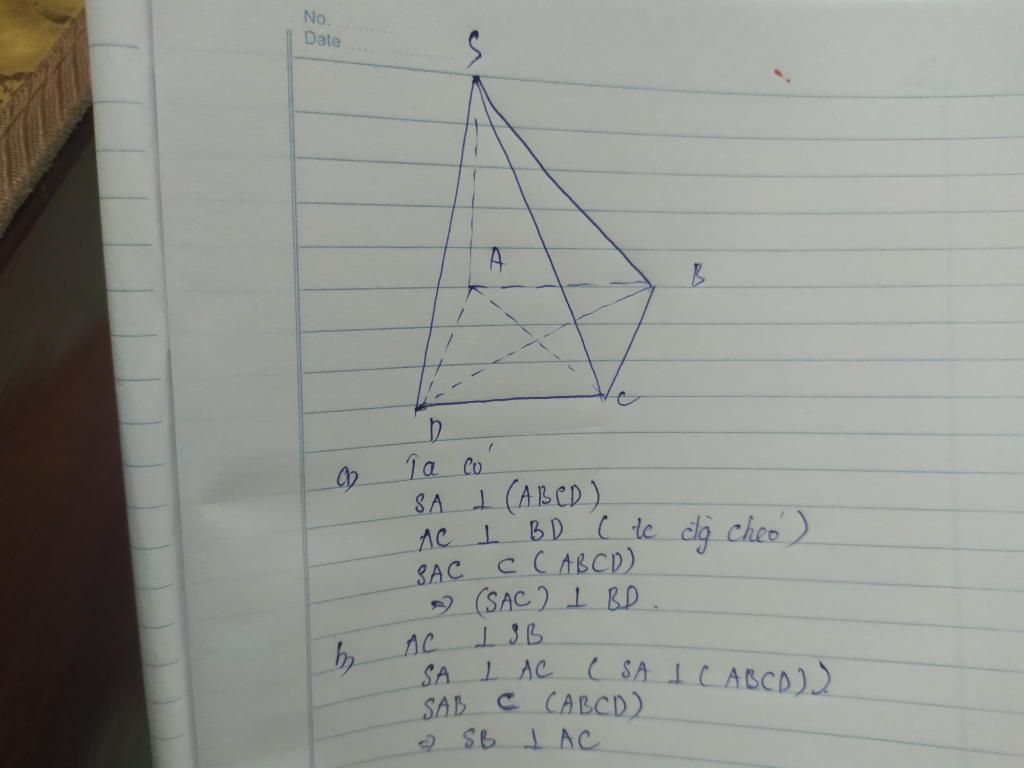 No. ........
Date ................
S
A
B
C
D
a) Ta có
SA ⊥ (ABCD)
AC ⊥ BD ( tc đg chéo )
SAC ⊂ ( ABCD)
⇒ (SAC) ⊥ BD .
b, AC ⊥ SB
SA ⊥ AC ( SA ⊥ ( ABCD) ).
SAB ⊂ (ABCD)
⇒ SB ⊥ AC